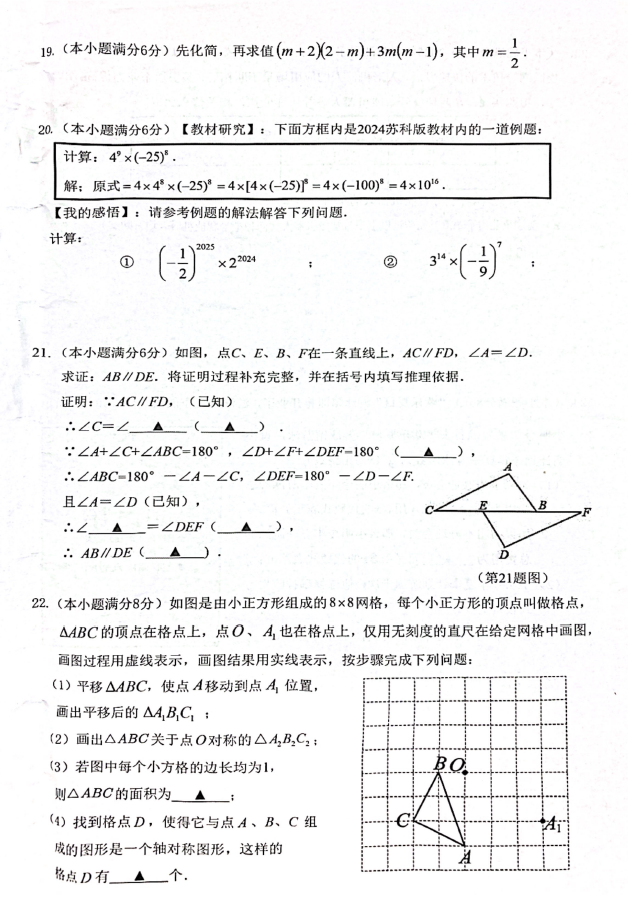 19.（本小题满分6分）先化简，再求值(m+2)(2−m)+3m(m−1)，其中m=1/2.
20.（本小题满分6分）【教材研究】：下面方框内是2024苏科版教材内的一道例题：
计算：4⁹×(−25)⁸.
解：原式=4×4⁸×(−25)⁸=4×[4×(−25)]⁸=4×(−100)⁸=4×10¹⁶.
【我的感悟】：请参考例题的解法解答下列问题.
计算：
① (−1/2)²⁰²⁵×2²⁰²⁴ ； ② 3¹⁴×(−1/9)⁷ ：
21.（本小题满分6分）如图，点C、E、B、F在一条直线上，AC∥FD，∠A=∠D.
求证：AB∥DE. 将证明过程补充完整，并在括号内填写推理依据.
证明：∵AC∥FD，（已知）
∴∠C=∠ ▲ （ ▲ ）.
∵∠A+∠C+∠ABC=180°，∠D+∠F+∠DEF=180°（ ▲ ），
∴∠ABC=180°－∠A－∠C，∠DEF=180°－∠D－∠F.
且∠A=∠D（已知），
∴∠ ▲ =∠DEF（ ▲ ），
∴ AB∥DE（ ▲ ）.
A
C E B F
D
（第21题图）
22.（本小题满分8分）如图是由小正方形组成的8×8网格，每个小正方形的顶点叫做格点，
△ABC的顶点在格点上，点O、A₁也在格点上，仅用无刻度的直尺在给定网格中画图，
画图过程用虚线表示，画图结果用实线表示，按步骤完成下列问题：
(1) 平移△ABC，使点A移动到点A₁位置，
画出平移后的△A₁B₁C₁；
(2) 画出△ABC关于点O对称的△A₂B₂C₂；
(3) 若图中每个小方格的边长均为1，
则△ABC的面积为 ▲ ；
(4) 找到格点D，使得它与点A、B、C 组
成的图形是一个轴对称图形，这样的
格点D有 ▲ 个.
B O
C A₁
A